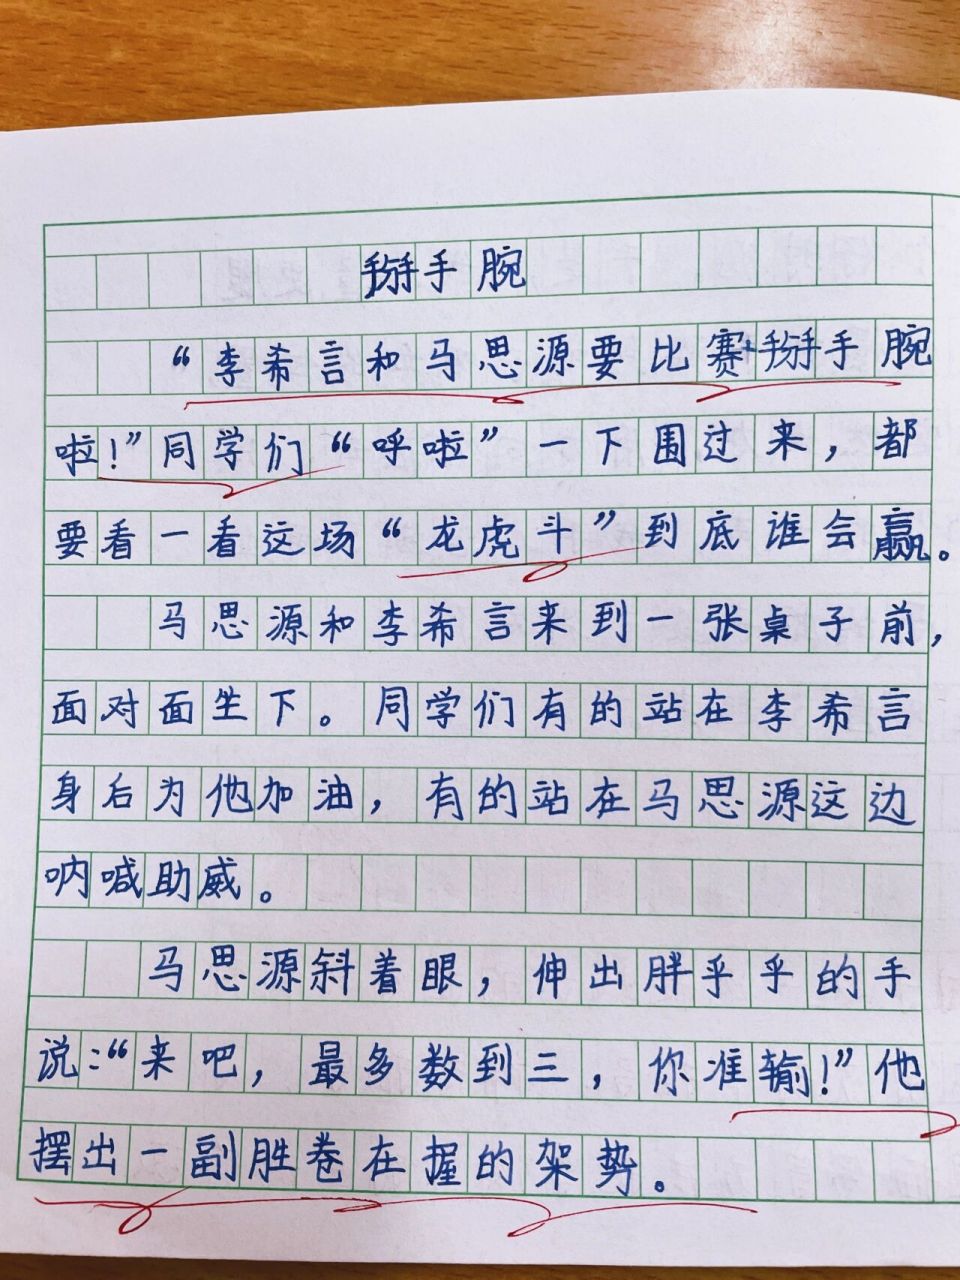 掰手腕
“李希言和马思源要比赛掰手腕
啦！”同学们“呼啦”一下围过来，都
要看一看这场“龙虎斗”到底谁会赢。
马思源和李希言来到一张桌子前，
面对面坐下。同学们有的站在李希言
身后为他加油，有的站在马思源这边
呐喊助威。
马思源斜着眼，伸出胖乎乎的手
说：“来吧，最多数到三，你准输！”他
摆出一副胜卷在握的架势。